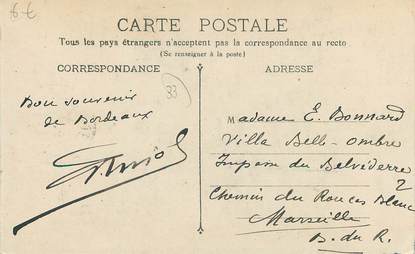 6 €
CARTE POSTALE
Tous les pays étrangers n'acceptent pas la correspondance au recto
(Se renseigner à la poste)
CORRESPONDANCE
ADRESSE
33
Bon souvenir
de Bordeaux
Madame E. Bonnard
Villa Bell-ombre
Impasse du Belvéderre
2
Chemin du Roucas Blanc
Marseille
B. du R.